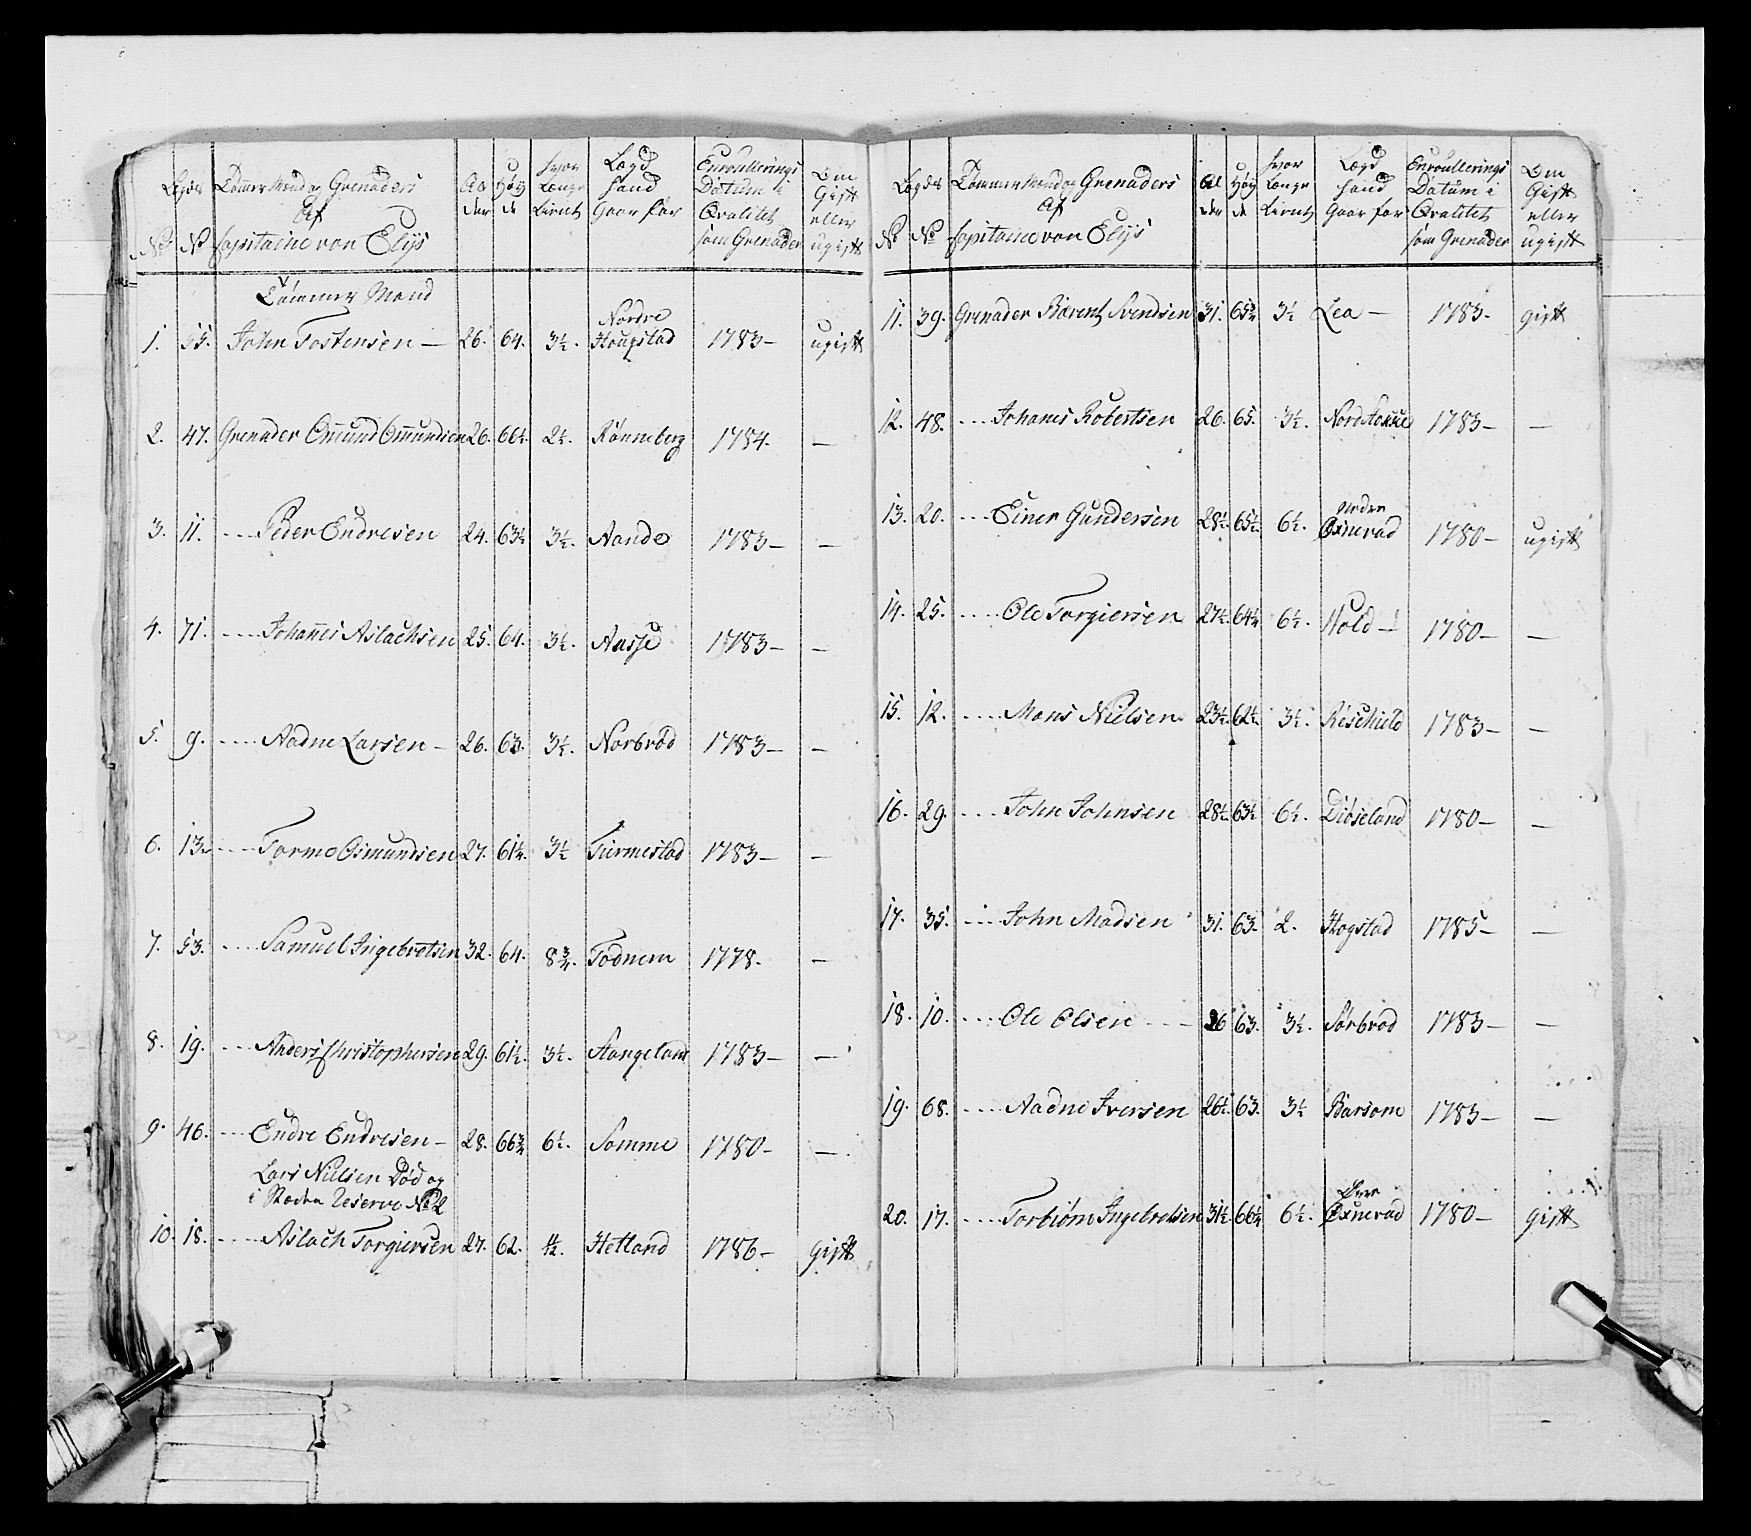 Legdes Tömmer Mand og Grenaders Al Höy hvor Lægd Enroullerings Om
der de Længe sand Datum i Gift
Af tient Gaar for Qvalitet eller
No No Capitaine von Elys som Grenader ugift
Tömmer Mand
1. 55. John Tostensen — 26. 64. 3½. Nordre Hougstad 1783 — ugift
2. 47. Grenader Omund Omundsen 26. 66½. 2½. Rönneberg 1784. —
3. 11. Peder Endresen 24. 63½ 3½. Aande 1783 — —
4. 71. Johanes Aslachsen 25. 64. 3½. 1783 — —
5. 9. Aadne Larsen — 26. 63. 3½. Norbröd 1783 — —
6. 13. Tormo Osmundsen 27. 61½. 3½ Turmestad 1783 — —
7. 53. Samuel Ingebretsen 32. 64. 8¾. Todnem 1778. —
8. 19. Anders Christophersen 29. 61½. 3½. Stangeland 1783 — —
9. 46. Endre Endresen — 28. 66¾ 6½. Somme 1780 — —
Lars Nielsen Död og
i Stæden Reserve No 2
10. 18. Aslach Torgiersen 27. 62. ½. Hetland 1786 — gift
Legdes Tömmer Mand og Grenaders Al Höy hvor Lægd Enroullerings Om
der de Længe sand Datum i Gift
Af tient Gaar for Qvalitet eller
No No Capitaine von Elys som Grenader ugift
11. 39. Grenader Barent Svendsen 31. 65¾ 3½ Lea — 1783 — gift
12. 48. Johanes Robertsen 26. 65. 3½. 1783 — —
13. 20. Einer Gundersen 28½ 65½ 6½. Nedre Öxnevad 1780 — ugift
14. 25. Ole Torgiersen 27½ 64½ 6½. Wold — 1780 — —
15. 12. Mons Nielsen 23½ 62½ 3½. Röschield 1783 — —
16. 29. John Johnsen 28½ 63½ 6½. Diöseland 1780 — —
17. 35. John Madsen 31. 63. 2. Hogstad 1785 — —
18. 10. Ole Olsen — 26 63. 3½. Sörbröd 1783 — —
19. 68. Aadne Iversen 26½ 63. 3½ Barsom 1783 — —
20. 17. Torbiörn Ingebretsen 31½ 66½ 6½. Övre Öxnevad 1780 — gift